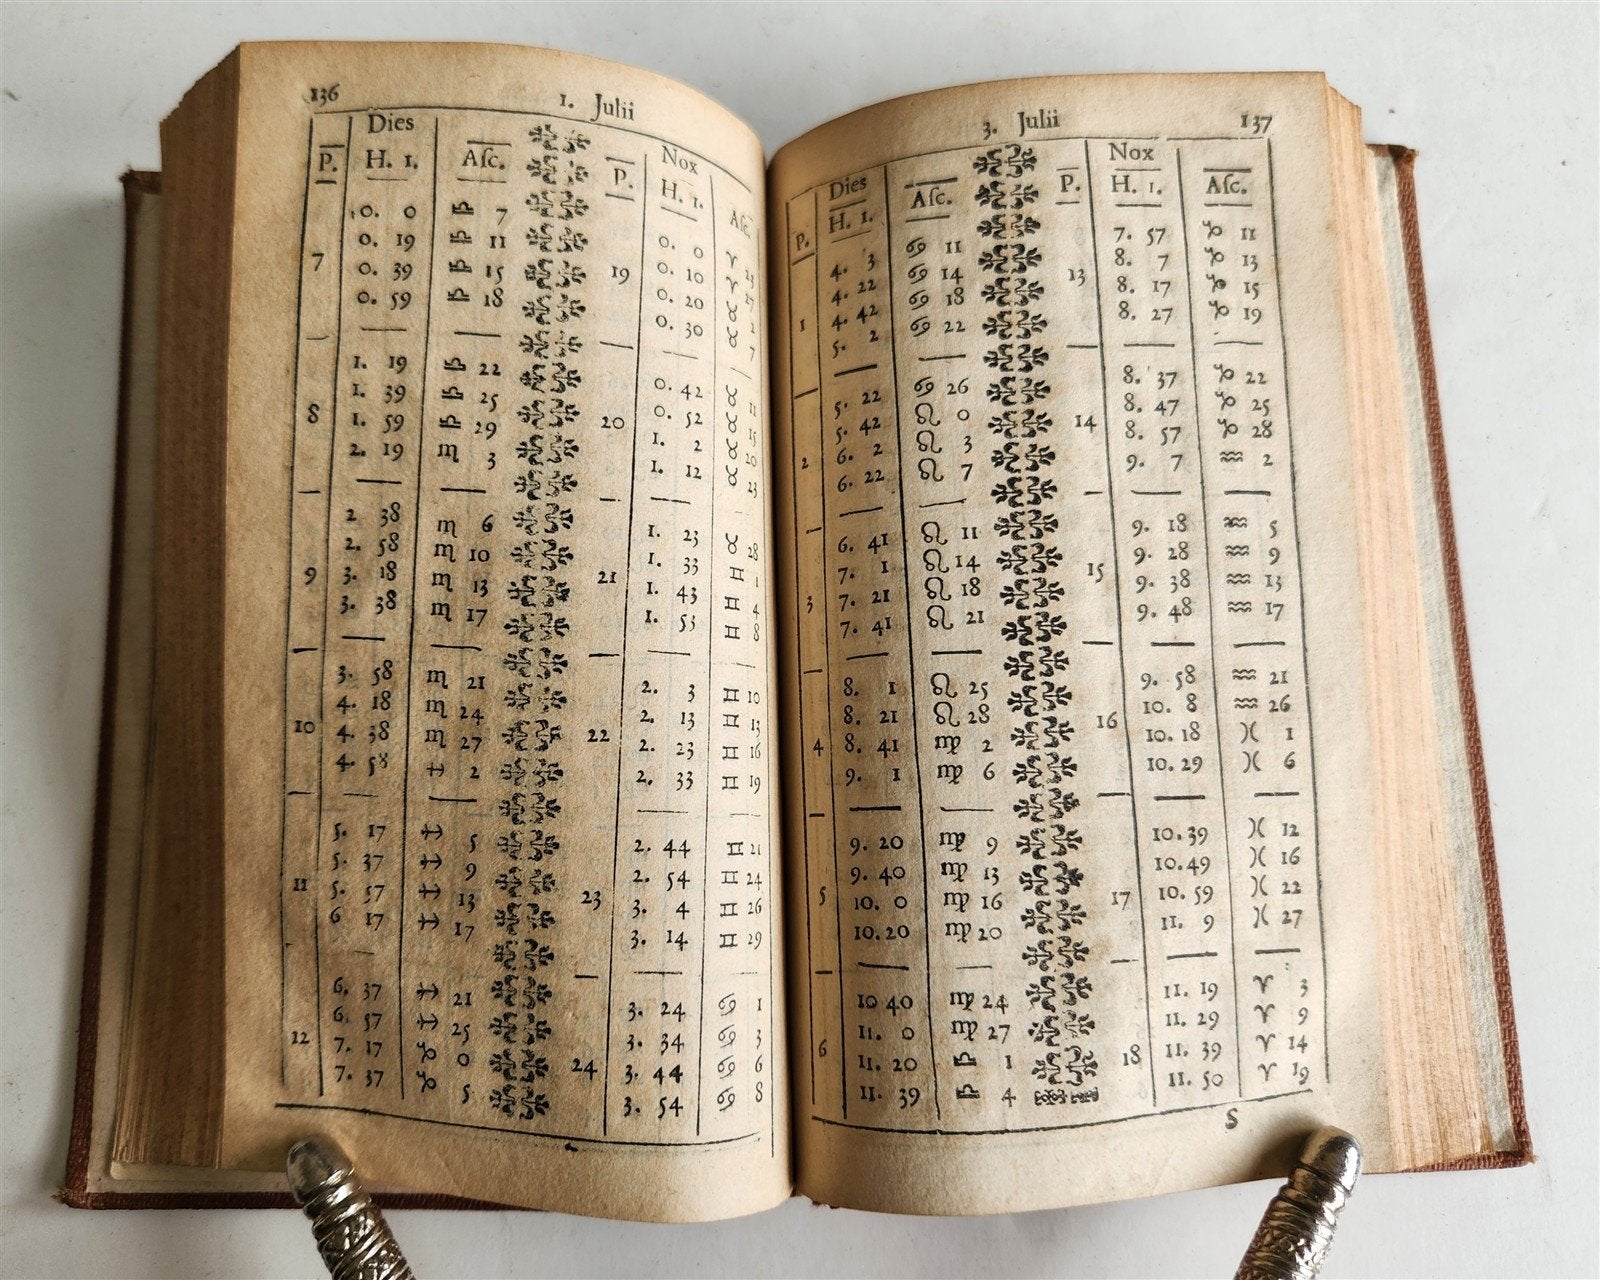 136 1. Julii
Dies Nox
P. H. 1. Aſc. P. H. 1. Aſc.
0. 0 ♎ 7 0. 0 ♈ 23
0. 19 ♎ 11 0. 10 ♈ 27
7 0. 39 ♎ 15 19 0. 20 ♉ 2
0. 59 ♎ 18 0. 30 ♉ 7
1. 19 ♎ 22 0. 42 ♉ 11
1. 39 ♎ 25 0. 52 ♉ 15
8 1. 59 ♎ 29 20 1. 2 ♉ 20
2. 19 ♏ 3 1. 12 ♉ 23
2 38 ♏ 6 1. 23 ♉ 28
2. 58 ♏ 10 1. 33 ♊ 1
9 3. 18 ♏ 13 21 1. 43 ♊ 4
3. 38 ♏ 17 1. 53 ♊ 8
3. 58 ♏ 21 2. 3 ♊ 10
4. 18 ♏ 24 2. 13 ♊ 13
10 4. 38 ♏ 27 22 2. 23 ♊ 16
4. 58 ♐ 2 2. 33 ♊ 19
5. 17 ♐ 5 2. 44 ♊ 21
5. 37 ♐ 9 2. 54 ♊ 24
11 5. 57 ♐ 13 23 3. 4 ♊ 26
6 17 ♐ 17 3. 14 ♊ 29
6. 37 ♐ 21 3. 24 ♋ 1
6. 57 ♐ 25 3. 34 ♋ 3
12 7. 17 ♑ 0 24 3. 44 ♋ 6
7. 37 ♑ 5 3. 54 ♋ 8
3. Julii 137
Dies Nox
P. H. 1. Aſc. P. H. 1. Aſc.
4. 3 ♋ 11 7. 57 ♑ 11
4. 22 ♋ 14 13 8. 7 ♑ 13
1 4. 42 ♋ 18 8. 17 ♑ 15
5. 2 ♋ 22 8. 27 ♑ 19
5. 22 ♋ 26 8. 37 ♑ 22
5. 42 ♌ 0 8. 47 ♑ 25
2 6. 2 ♌ 3 14 8. 57 ♑ 28
6. 22 ♌ 7 9. 7 ♒ 2
6. 41 ♌ 11 9. 18 ♒ 5
7. 1 ♌ 14 9. 28 ♒ 9
3 7. 21 ♌ 18 15 9. 38 ♒ 13
7. 41 ♌ 21 9. 48 ♒ 17
8. 1 ♌ 25 9. 58 ♒ 21
8. 21 ♌ 28 10. 8 ♒ 26
4 8. 41 ♍ 2 16 10. 18 ♓ 1
9. 1 ♍ 6 10. 29 ♓ 6
9. 20 ♍ 9 10. 39 ♓ 12
9. 40 ♍ 13 10. 49 ♓ 16
5 10. 0 ♍ 16 17 10. 59 ♓ 22
10. 20 ♍ 20 11. 9 ♓ 27
10 40 ♍ 24 11. 19 ♈ 3
11. 0 ♍ 27 11. 29 ♈ 9
6 11. 20 ♎ 1 18 11. 39 ♈ 14
11. 39 ♎ 4 11. 50 ♈ 19
S